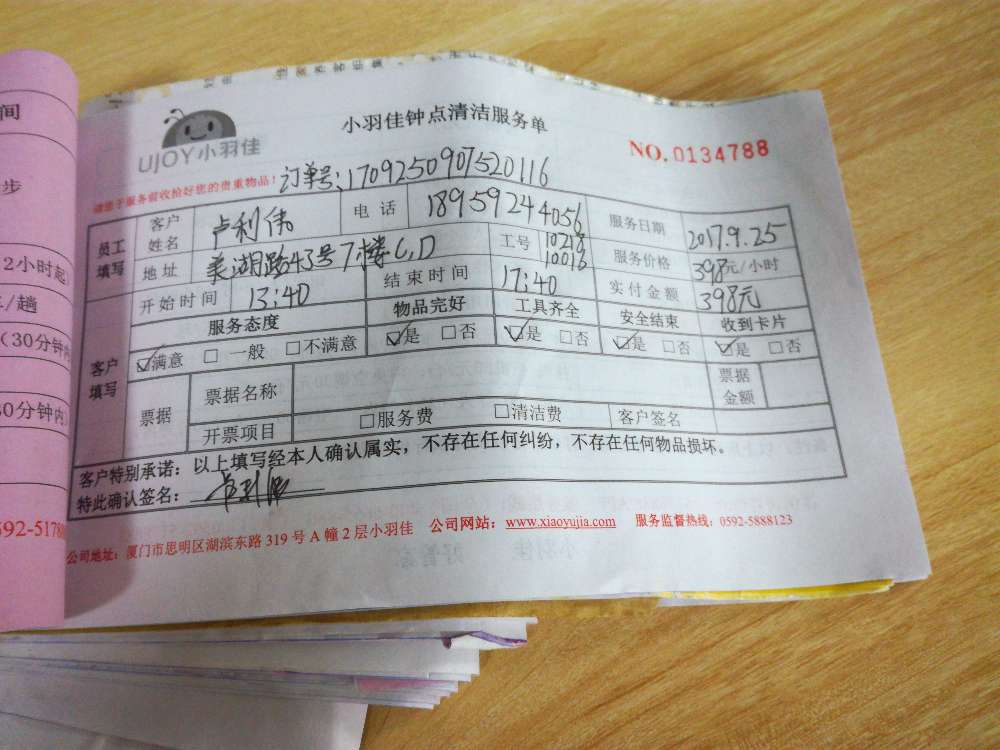 间
步
2小时起
/趟
（30分钟内
0分钟内
592-5178
UJOY小羽佳
小羽佳钟点清洁服务单
NO. 0134788
请您于服务前收拾好您的贵重物品！
订单号：1709250907520116
员工填写
客户姓名 卢利伟 电话 18959244056 服务日期 2017.9.25
地址 美湖路43号7楼C,D 工号 10218 10016 服务价格 398元/小时
开始时间 13:40 结束时间 17:40 实付金额 398元
客户填写
服务态度 物品完好 工具齐全 安全结束 收到卡片
☑满意 □一般 □不满意 ☑是 □否 ☑是 □否 ☑是 □否 ☑是 □否
票据 票据名称 票据金额
开票项目 □服务费 □清洁费 客户签名
客户特别承诺：以上填写经本人确认属实，不存在任何纠纷，不存在任何物品损坏。
特此确认签名：卢利伟
公司地址：厦门市思明区湖滨东路 319 号 A 幢 2 层小羽佳 公司网站：www.xiaoyujia.com 服务监督热线：0592-5888123